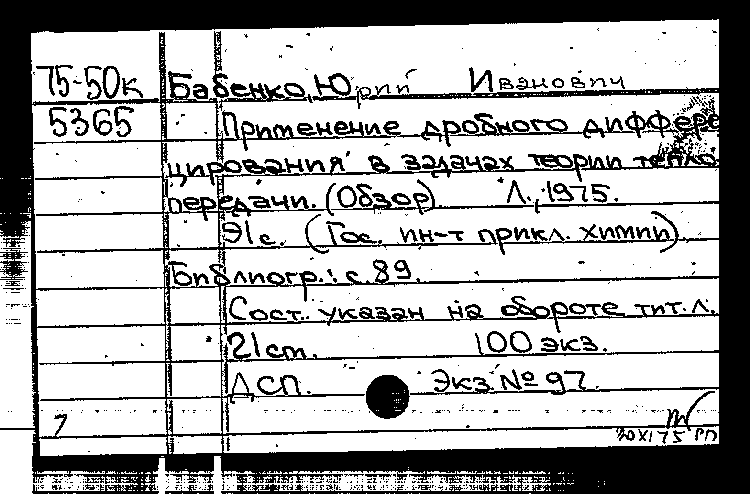 75-50к Бабенко, Юрий Иванович
5365 Применение дробного диффере
цирования в задачах теории тепло
передачи. (Обзор). Л., 1975.
91 с. (Гос. ин-т прикл. химии).
Библиогр.: с. 89.
Сост. указан на обороте тит. л.
21 см. 100 экз.
ДСП. Экз. № 97.
30 XI 75 РП